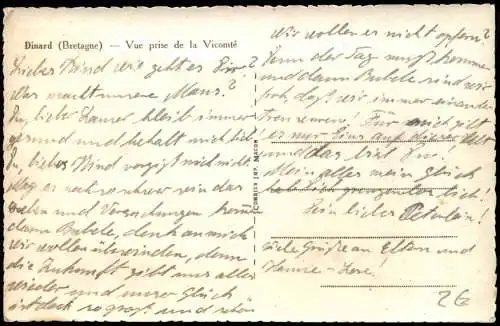 Dinard (Bretagne) — Vue prise de la Vicomté
Liebes Kind wie geht es Dir?
Was macht unsere Maus?
Du, lieber bleib immer
gesund und behalt mich lieb!
Du, liebes Kind vergiß mich nicht
mag es noch so schwer sein das
und Versuchungen kommen
dann Bubele, denk an mich
wir wollen überwinden, denn
die Zukunft gibt uns alles
wieder und unser Glück
ist doch so groß und schön
COMBIER IMP. MACON
Wir wollen es nicht opfern?
Denn der Tag muß kommen
und dann Bubele sind wir
froh, daß wir immer einander
treu waren! Für mich gibt
es nur Eins auf dieser Welt
und das bist Du!
Mein alles mein Glück
hab Dich grenzenlos lieb!
Dein lieber
viele Grüße an Eltern und
26